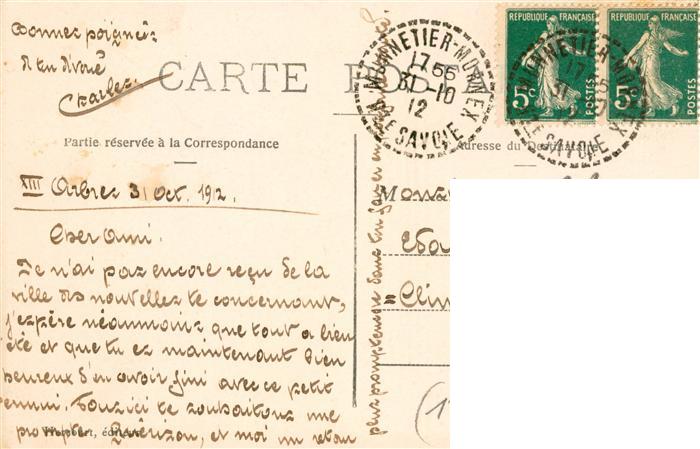 Bonnes poignées
A ton dévoué
Charles
CARTE
MONNETIER-MORNEX
1755
31-10
12
Hte SAVOIE
REPUBLIQUE FRANÇAISE
5c
POSTES
REPUBLIQUE FRANÇAISE
5c
POSTES
MONNETIER-MORNEX
Hte SAVOIE
Partie réservée à la Correspondance
Adresse du Destinataire
XIII Arbres 31 Oct. 1912.
Cher ami.
Je n'ai pas encore reçu de la
ville des nouvelles te concernant,
j'espère néanmoins que tout a bien
été et que tu es maintenant bien
heureux d'en avoir fini avec ce petit
ennui. Tous ici te souhaitons une
prompte guérison, et moi un retour
plus prompt encore dans ton
éditeur
Clin
(1